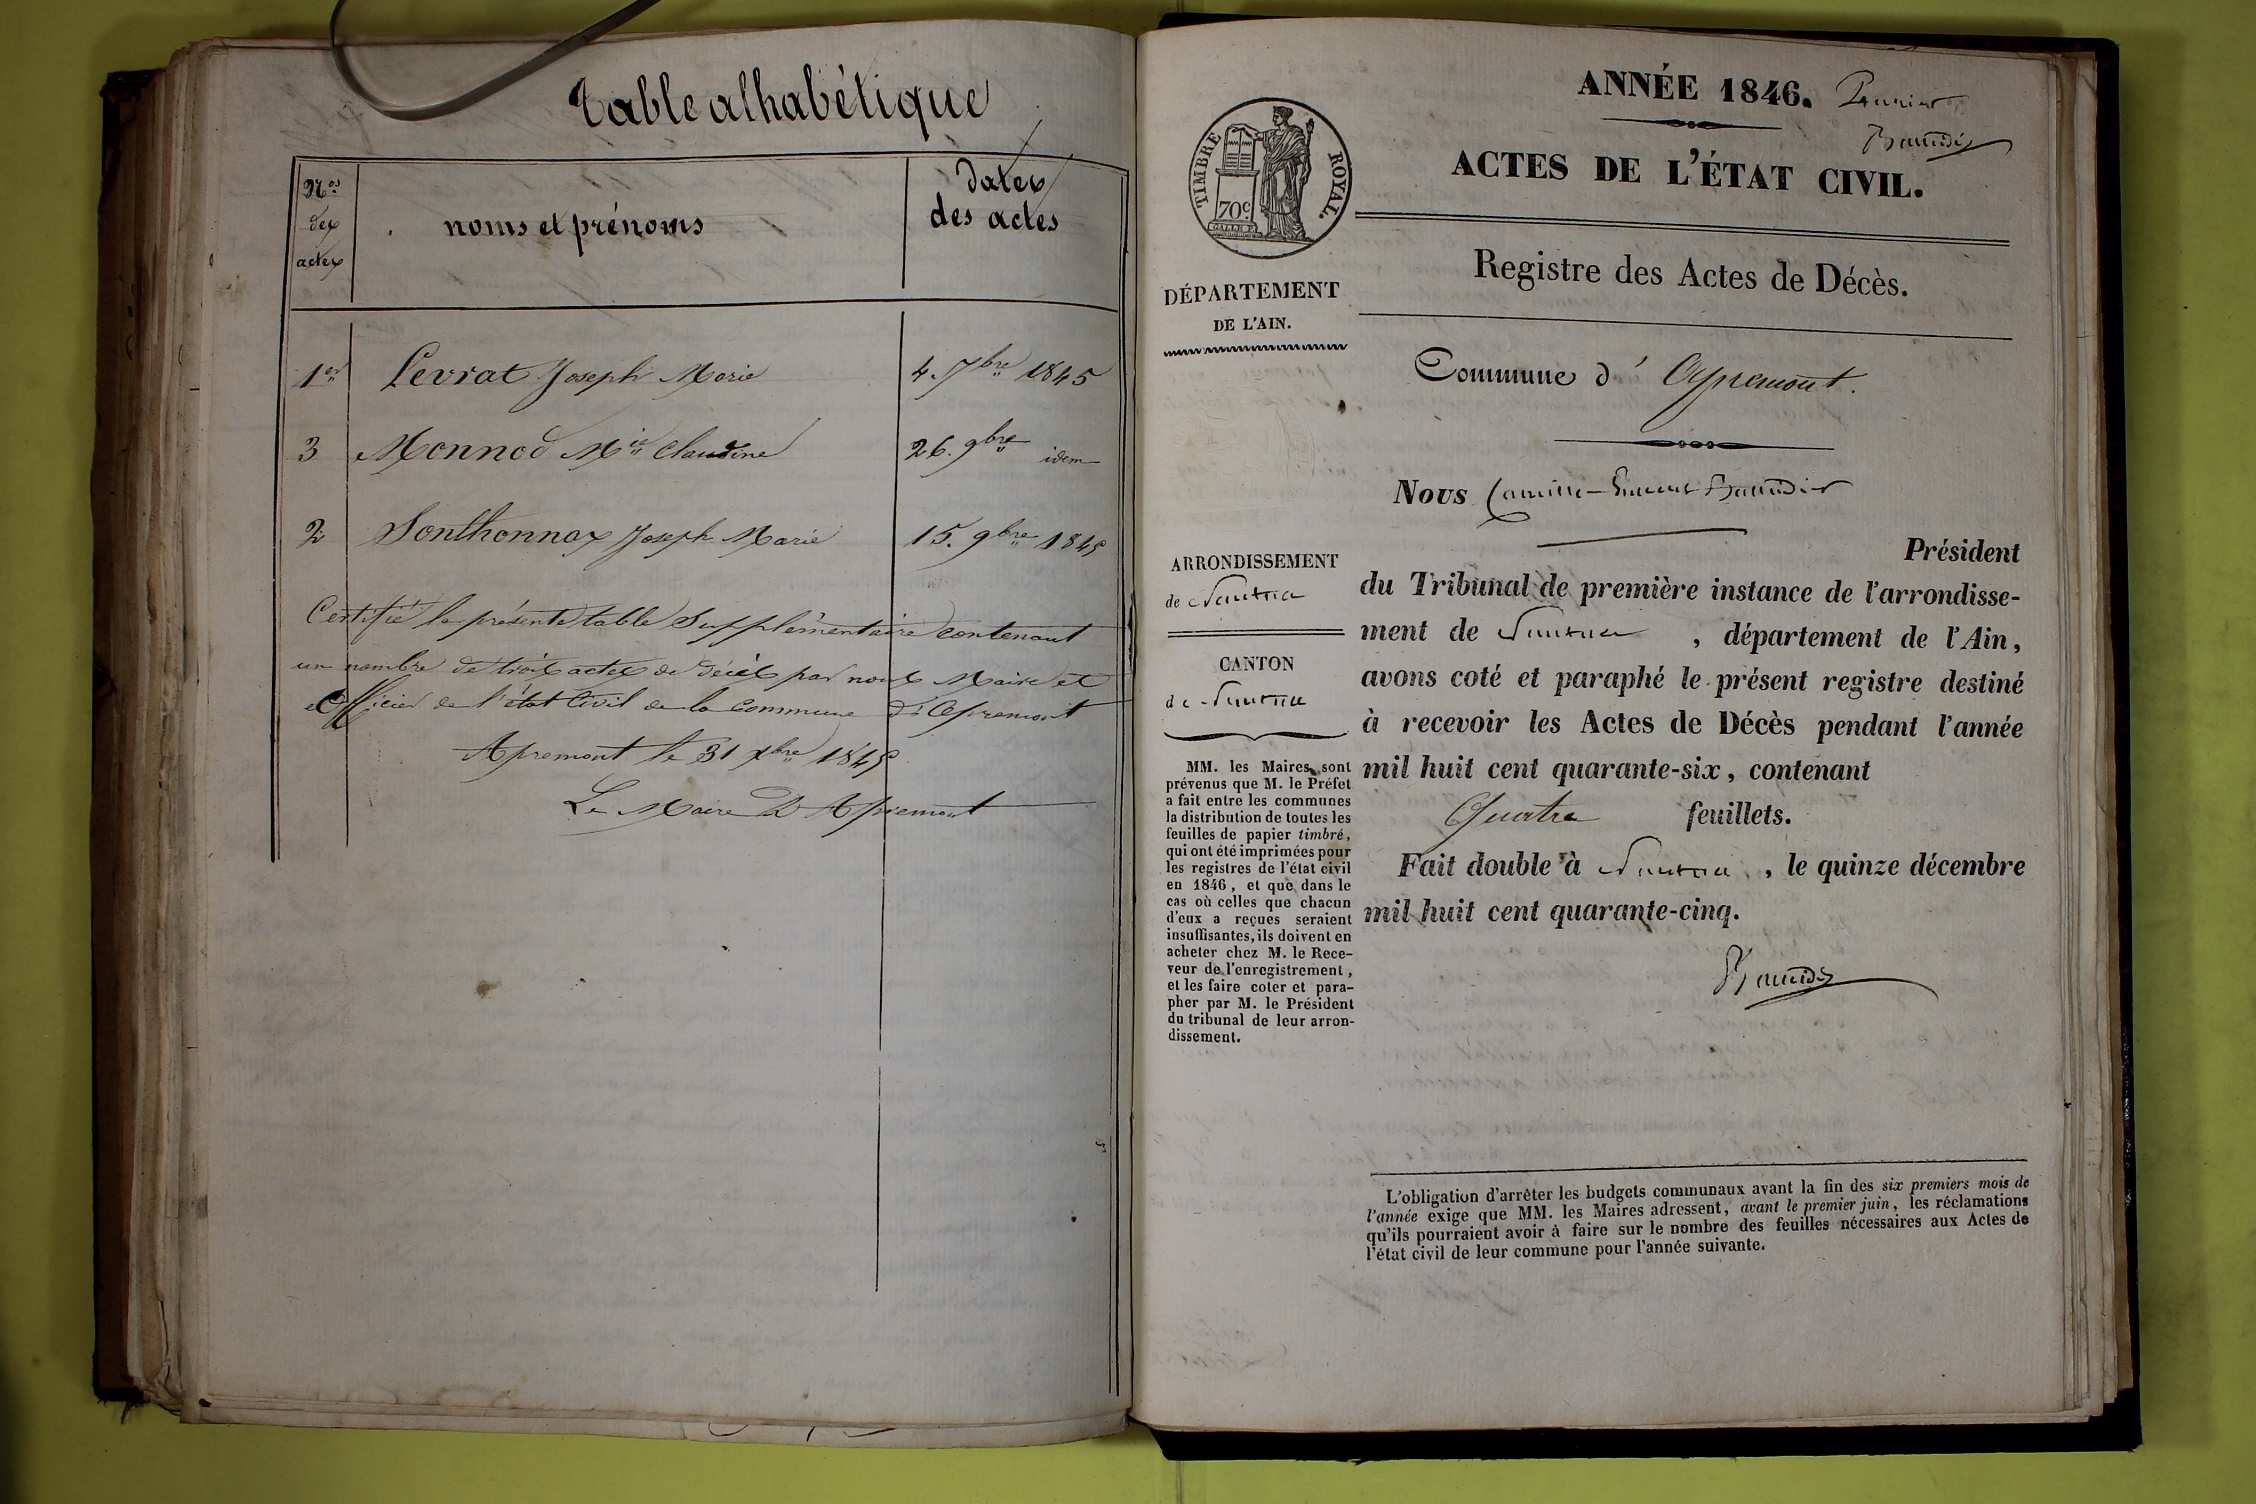 Table alhabétique
Nos des actes
noms et prénoms
dates des actes
1er Levrat Joseph Marie 4. 7bre 1845
3 Monnod Mie Claudine 26. 9bre idem
2 Sonthonnax Joseph Marie 15. 9bre 1845
Certifié la présente table Supplémentaire contenant
un nombre de trois actes de décès par nous Maire et
Officier de l'état Civil de la Commune d'Apremont
Apremont le 31 Xbre 1845
Le Maire D'Apremont
ANNÉE 1846. Premier
Baudier
ACTES DE L'ÉTAT CIVIL.
TIMBRE ROYAL.
70c
Registre des Actes de Décès.
DÉPARTEMENT
DE L'AIN.
Commune d'Apremont.
Nous
Président
du Tribunal de première instance de l'arrondisse-
ment de Nantua, département de l'Ain,
avons coté et paraphé le présent registre destiné
à recevoir les Actes de Décès pendant l'année
mil huit cent quarante-six, contenant
Quatre feuillets.
Fait double à Nantua, le quinze décembre
mil huit cent quarante-cinq.
ARRONDISSEMENT
de Nantua
CANTON
de Nantua
MM. les Maires sont
prévenus que M. le Préfet
a fait entre les communes
la distribution de toutes les
feuilles de papier timbré,
qui ont été imprimées pour
les registres de l'état civil
en 1846, et que dans le
cas où celles que chacun
d'eux a reçues seraient
insuffisantes, ils doivent en
acheter chez M. le Rece-
veur de l'enregistrement,
et les faire coter et para-
pher par M. le Président
du tribunal de leur arron-
dissement.
L'obligation d'arrêter les budgets communaux avant la fin des six premiers mois de
l'année exige que MM. les Maires adressent, avant le premier juin, les réclamations
qu'ils pourraient avoir à faire sur le nombre des feuilles nécessaires aux Actes de
l'état civil de leur commune pour l'année suivante.